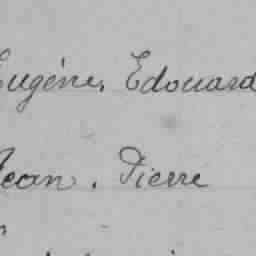 Eugène, Edouard
Jean, Pierre